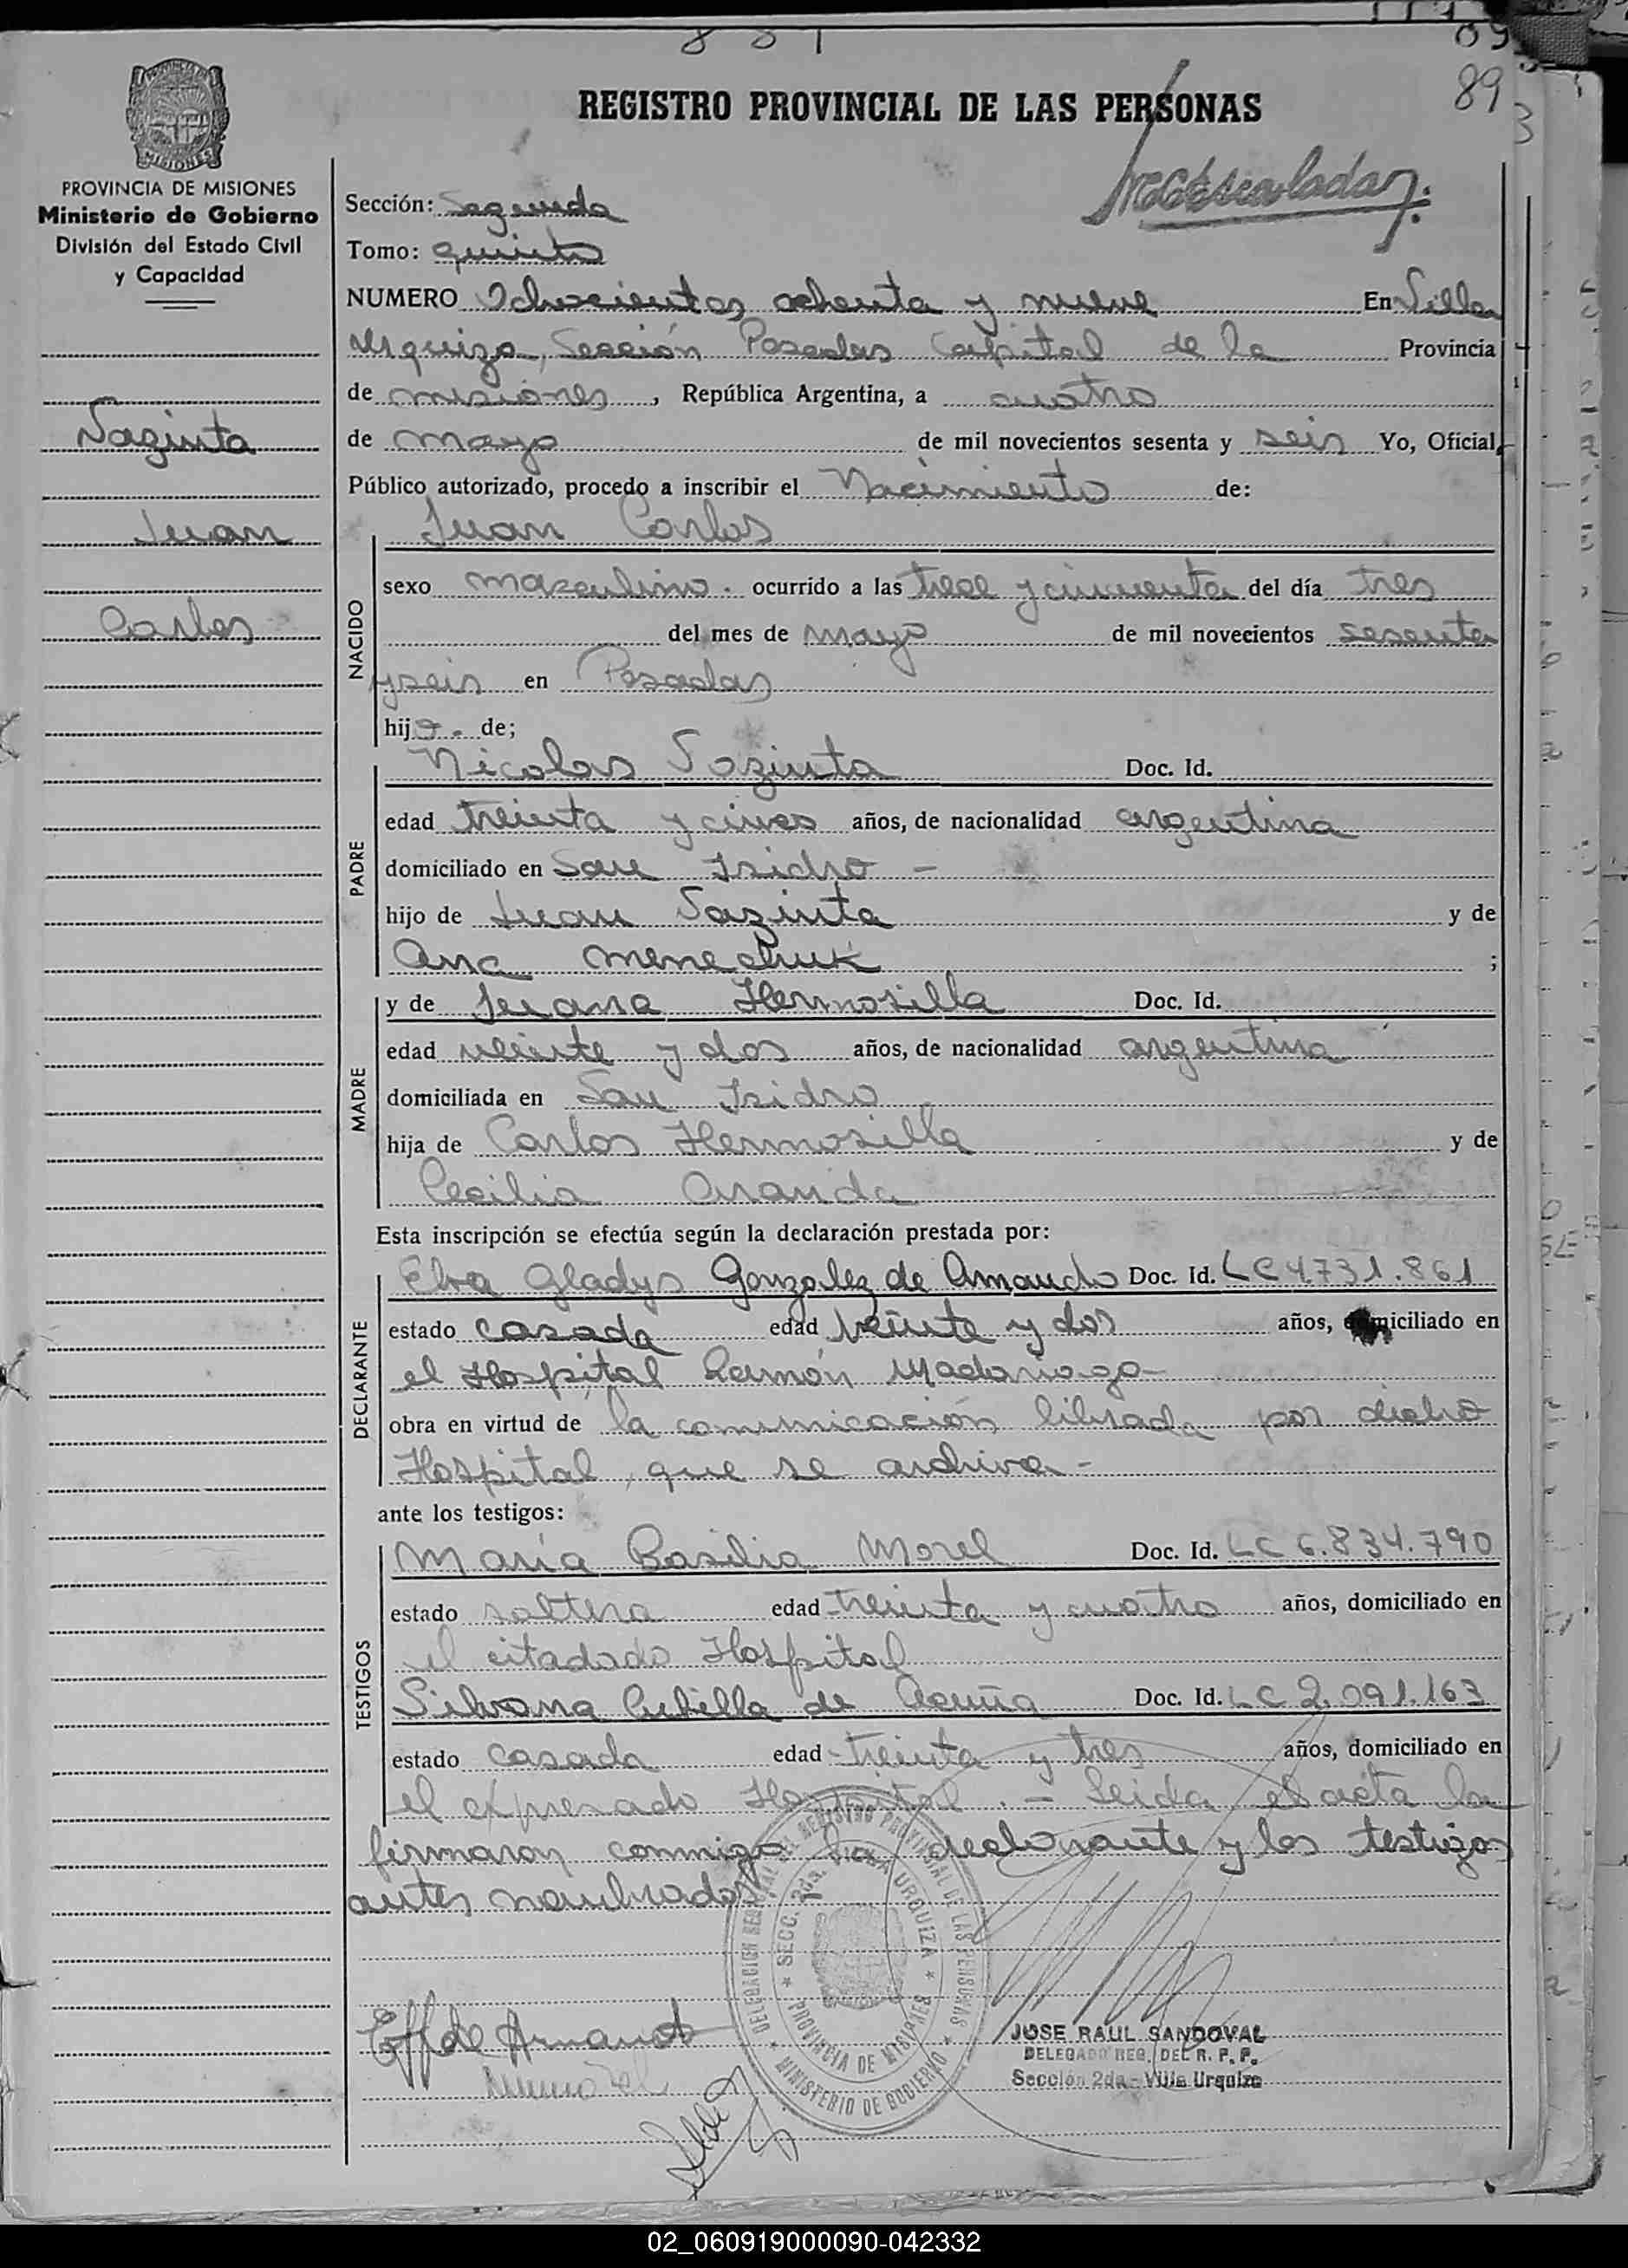 881
89
REGISTRO PROVINCIAL DE LAS PERSONAS
MISIONES
PROVINCIA DE MISIONES
Ministerio de Gobierno
División del Estado Civil
y Capacidad
Sazinta
Juan
Carlos
Sección: Segunda
Tomo: quinto
NUMERO Ochocientos ochenta y nueve En Villa
Urquiza, Sección Posadas Capital de la Provincia
de misiones, República Argentina, a cuatro
de mayo de mil novecientos sesenta y seis Yo, Oficial
Público autorizado, procedo a inscribir el Nacimiento de:
Juan Carlos
NACIDO
sexo masculino. ocurrido a las trece y cincuenta del día tres
del mes de mayo de mil novecientos sesenta
y seis en Posadas
hijo. de;
PADRE
Nicolas Sazinta Doc. Id.
edad treinta y cinco años, de nacionalidad argentina
domiciliado en San Isidro -
hijo de Juan Sazinta y de
Ana Menechuk ;
MADRE
y de Juana Hermosilla Doc. Id.
edad veinte y dos años, de nacionalidad argentina
domiciliada en San Isidro
hija de Carlos Hermosilla y de
Cecilia Aranda
Esta inscripción se efectúa según la declaración prestada por:
DECLARANTE
Elva Gladys Gonzalez de Amaudo Doc. Id. LC 4.731.861
estado casada edad veinte y dos años, domiciliado en
el Hospital Ramón Madariaga-
obra en virtud de la comunicación librada por dicho
Hospital, que se archiva-
ante los testigos:
TESTIGOS
María Basilia Morel Doc. Id. LC 6.834.790
estado soltera edad treinta y cuatro años, domiciliado en
el citadado Hospital
Silvana Cubilla de Acuña Doc. Id. LC 2.091.163
estado casada edad treinta y tres años, domiciliado en
el expresado Hospital.- Leida el acta la
firmaron conmigo la declarante y los testigos
antes nombrados
DELEGACION REGIONAL DEL REGISTRO PROVINCIAL DE LAS PERSONAS
MINISTERIO DE GOBIERNO
SECC. 2da. VILLA URQUIZA
PROVINCIA DE MISIONES
JOSE RAUL SANDOVAL
DELEGADO REG. DEL R. P. P.
Sección 2da - Villa Urquiza
02_060919000090-042332